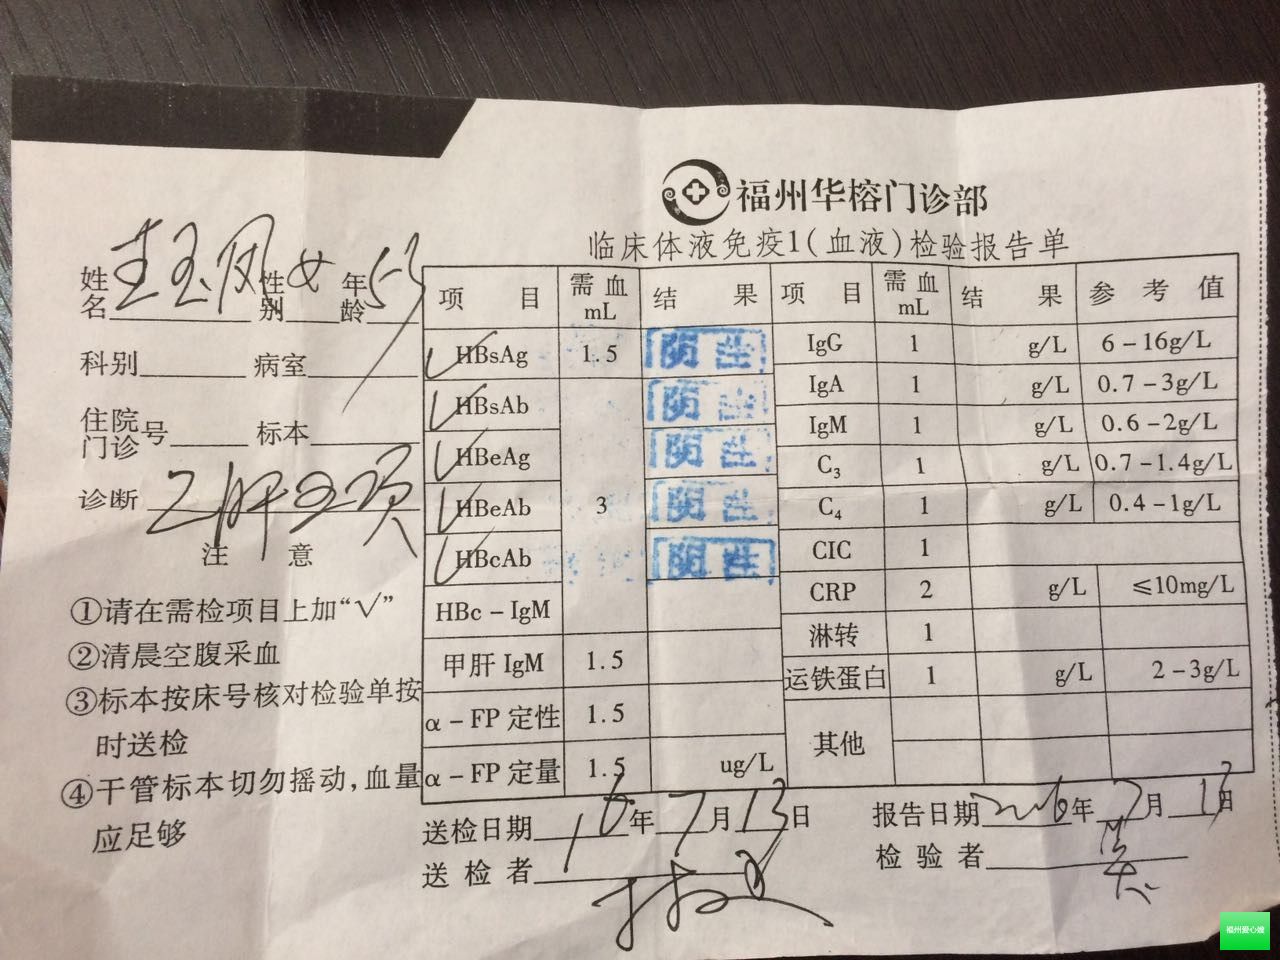 福州华榕门诊部
临床体液免疫1(血液)检验报告单
姓名 玉凤 性别 女 年龄 53
科别 病室
住院门诊号 标本
诊断 乙肝五项
注 意
①请在需检项目上加“√”
②清晨空腹采血
③标本按床号核对检验单按
时送检
④干管标本切勿摇动,血量
应足够
项 目 需血mL 结 果
√ HBsAg 1.5 阴性
√ HBsAb 阴性
√ HBeAg 阴性
√ HBeAb 3 阴性
√ HBcAb 阴性
HBc-IgM
甲肝IgM 1.5
α-FP定性 1.5
α-FP定量 1.5 ug/L
项 目 需血mL 结 果 参 考 值
IgG 1 g/L 6-16g/L
IgA 1 g/L 0.7-3g/L
IgM 1 g/L 0.6-2g/L
C3 1 g/L 0.7-1.4g/L
C4 1 g/L 0.4-1g/L
CIC 1
CRP 2 g/L ≤10mg/L
淋转 1
运铁蛋白 1 g/L 2-3g/L
其他
送检日期 16年7月13日
报告日期 2016年7月13日
送检者
检验者
福州爱心嫂